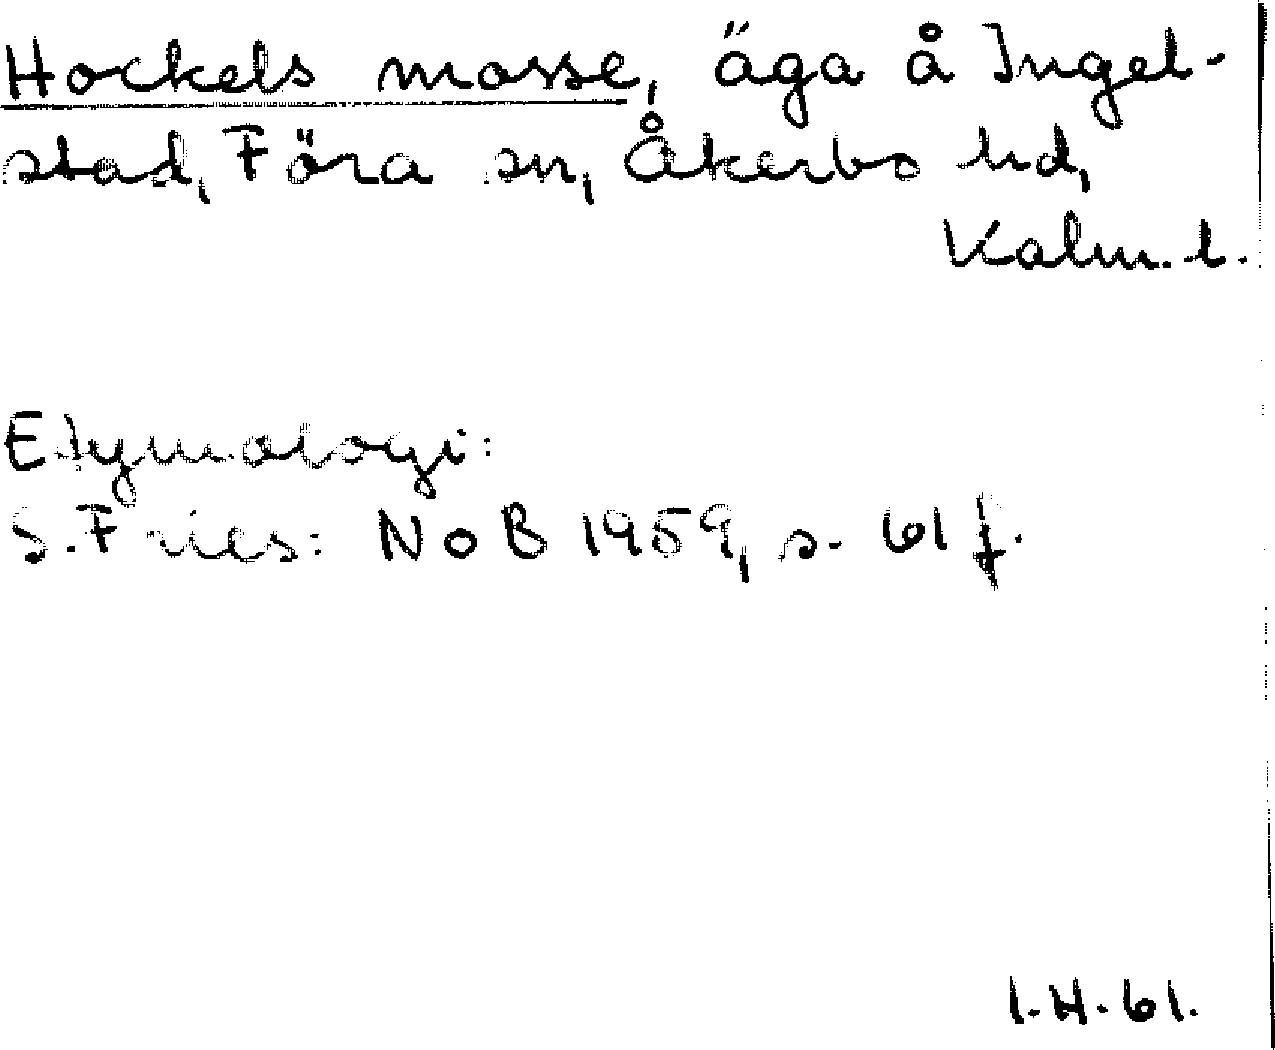 Hockels mosse, äga å Ingel-
stad, Föra sn, Åkerbo hd,
Kalm. l.
Etymologi:
S. Fries: NoB 1959, s. 61 f.
I.H. 61.